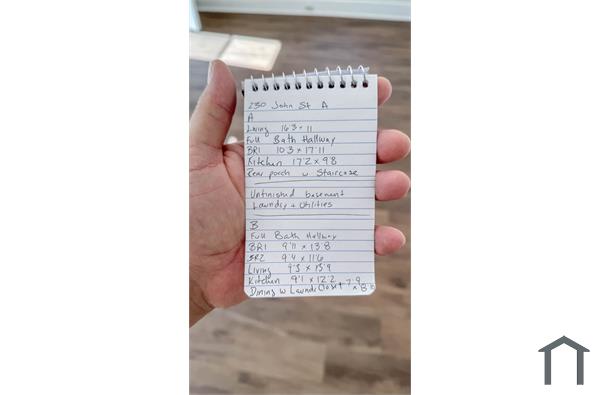 230 John St A
A
Living 16'3 x 11
Full Bath Hallway
BR1 10'3 x 17'11
Kitchen 17'2 x 9'8
Rear porch w Staircase
Unfinished basement
Laundry + Utilities
B
Full Bath Hallway
BR1 9'11 x 13'8
BR2 9'4 x 11'6
Living 9'3 x 15'9
Kitchen 9'1 x 12'2
Dining w Laundr Closet 7'9 x